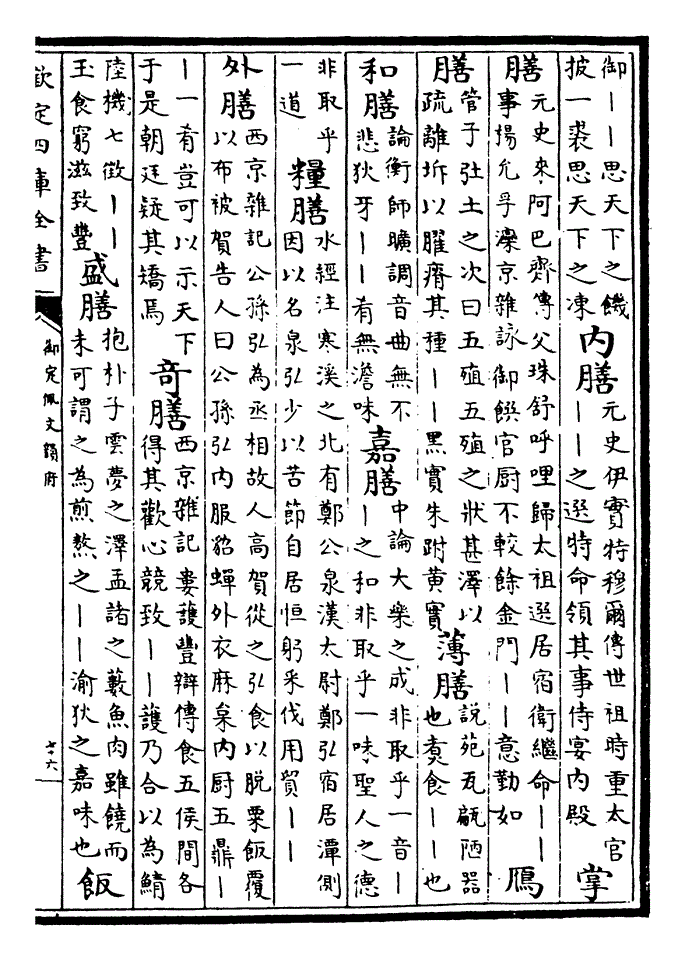 御丨丨思天下之饑
披一裘思天下之凍
内膳
元史伊實特穆爾傳世祖時重太官
丨丨之選特命領其事侍宴内殿
掌
膳
元史來阿巴齊傳父珠舒呼哩歸太祖選居宿衛繼命丨丨
事揚允孚灤京雜詠御饌官厨不較餘金門丨丨意勤如
鴈
膳
管子𢎞土之次曰五殖五殖之狀甚澤以
疏離坼以臞瘠其種丨丨黒實朱跗黄實
薄膳
説苑瓦甂陋器
也煑食丨丨也
和膳
論衡師曠調音曲無不
悲狄牙丨丨有無澹味
嘉膳
中論大樂之成非取乎一音丨
丨之和非取乎一味聖人之德
非取乎
一道
糧膳
水經注寒溪之北有鄭公泉漢太尉鄭弘宿居潭側
因以名泉弘少以苦節自居恒躬采伐用貿丨丨
外膳
西京雜記公孫弘為丞相故人高賀從之弘食以脱粟飯覆
以布被賀告人曰公孫弘内服貂蟬外衣麻枲内厨五鼎丨
丨一肴豈可以示天下
于是朝廷疑其矯焉
奇膳
西京雜記婁護豐辯傳食五侯間各
得其歡心競致丨丨護乃合以為鯖
陸機七徴丨丨
玉食窮滋致豐
盛膳
抱朴子雲夢之澤孟諸之藪魚肉雖饒而
未可謂之為煎熬之丨丨渝狄之嘉味也
飯
欽定四庫全書
御定佩文韻府